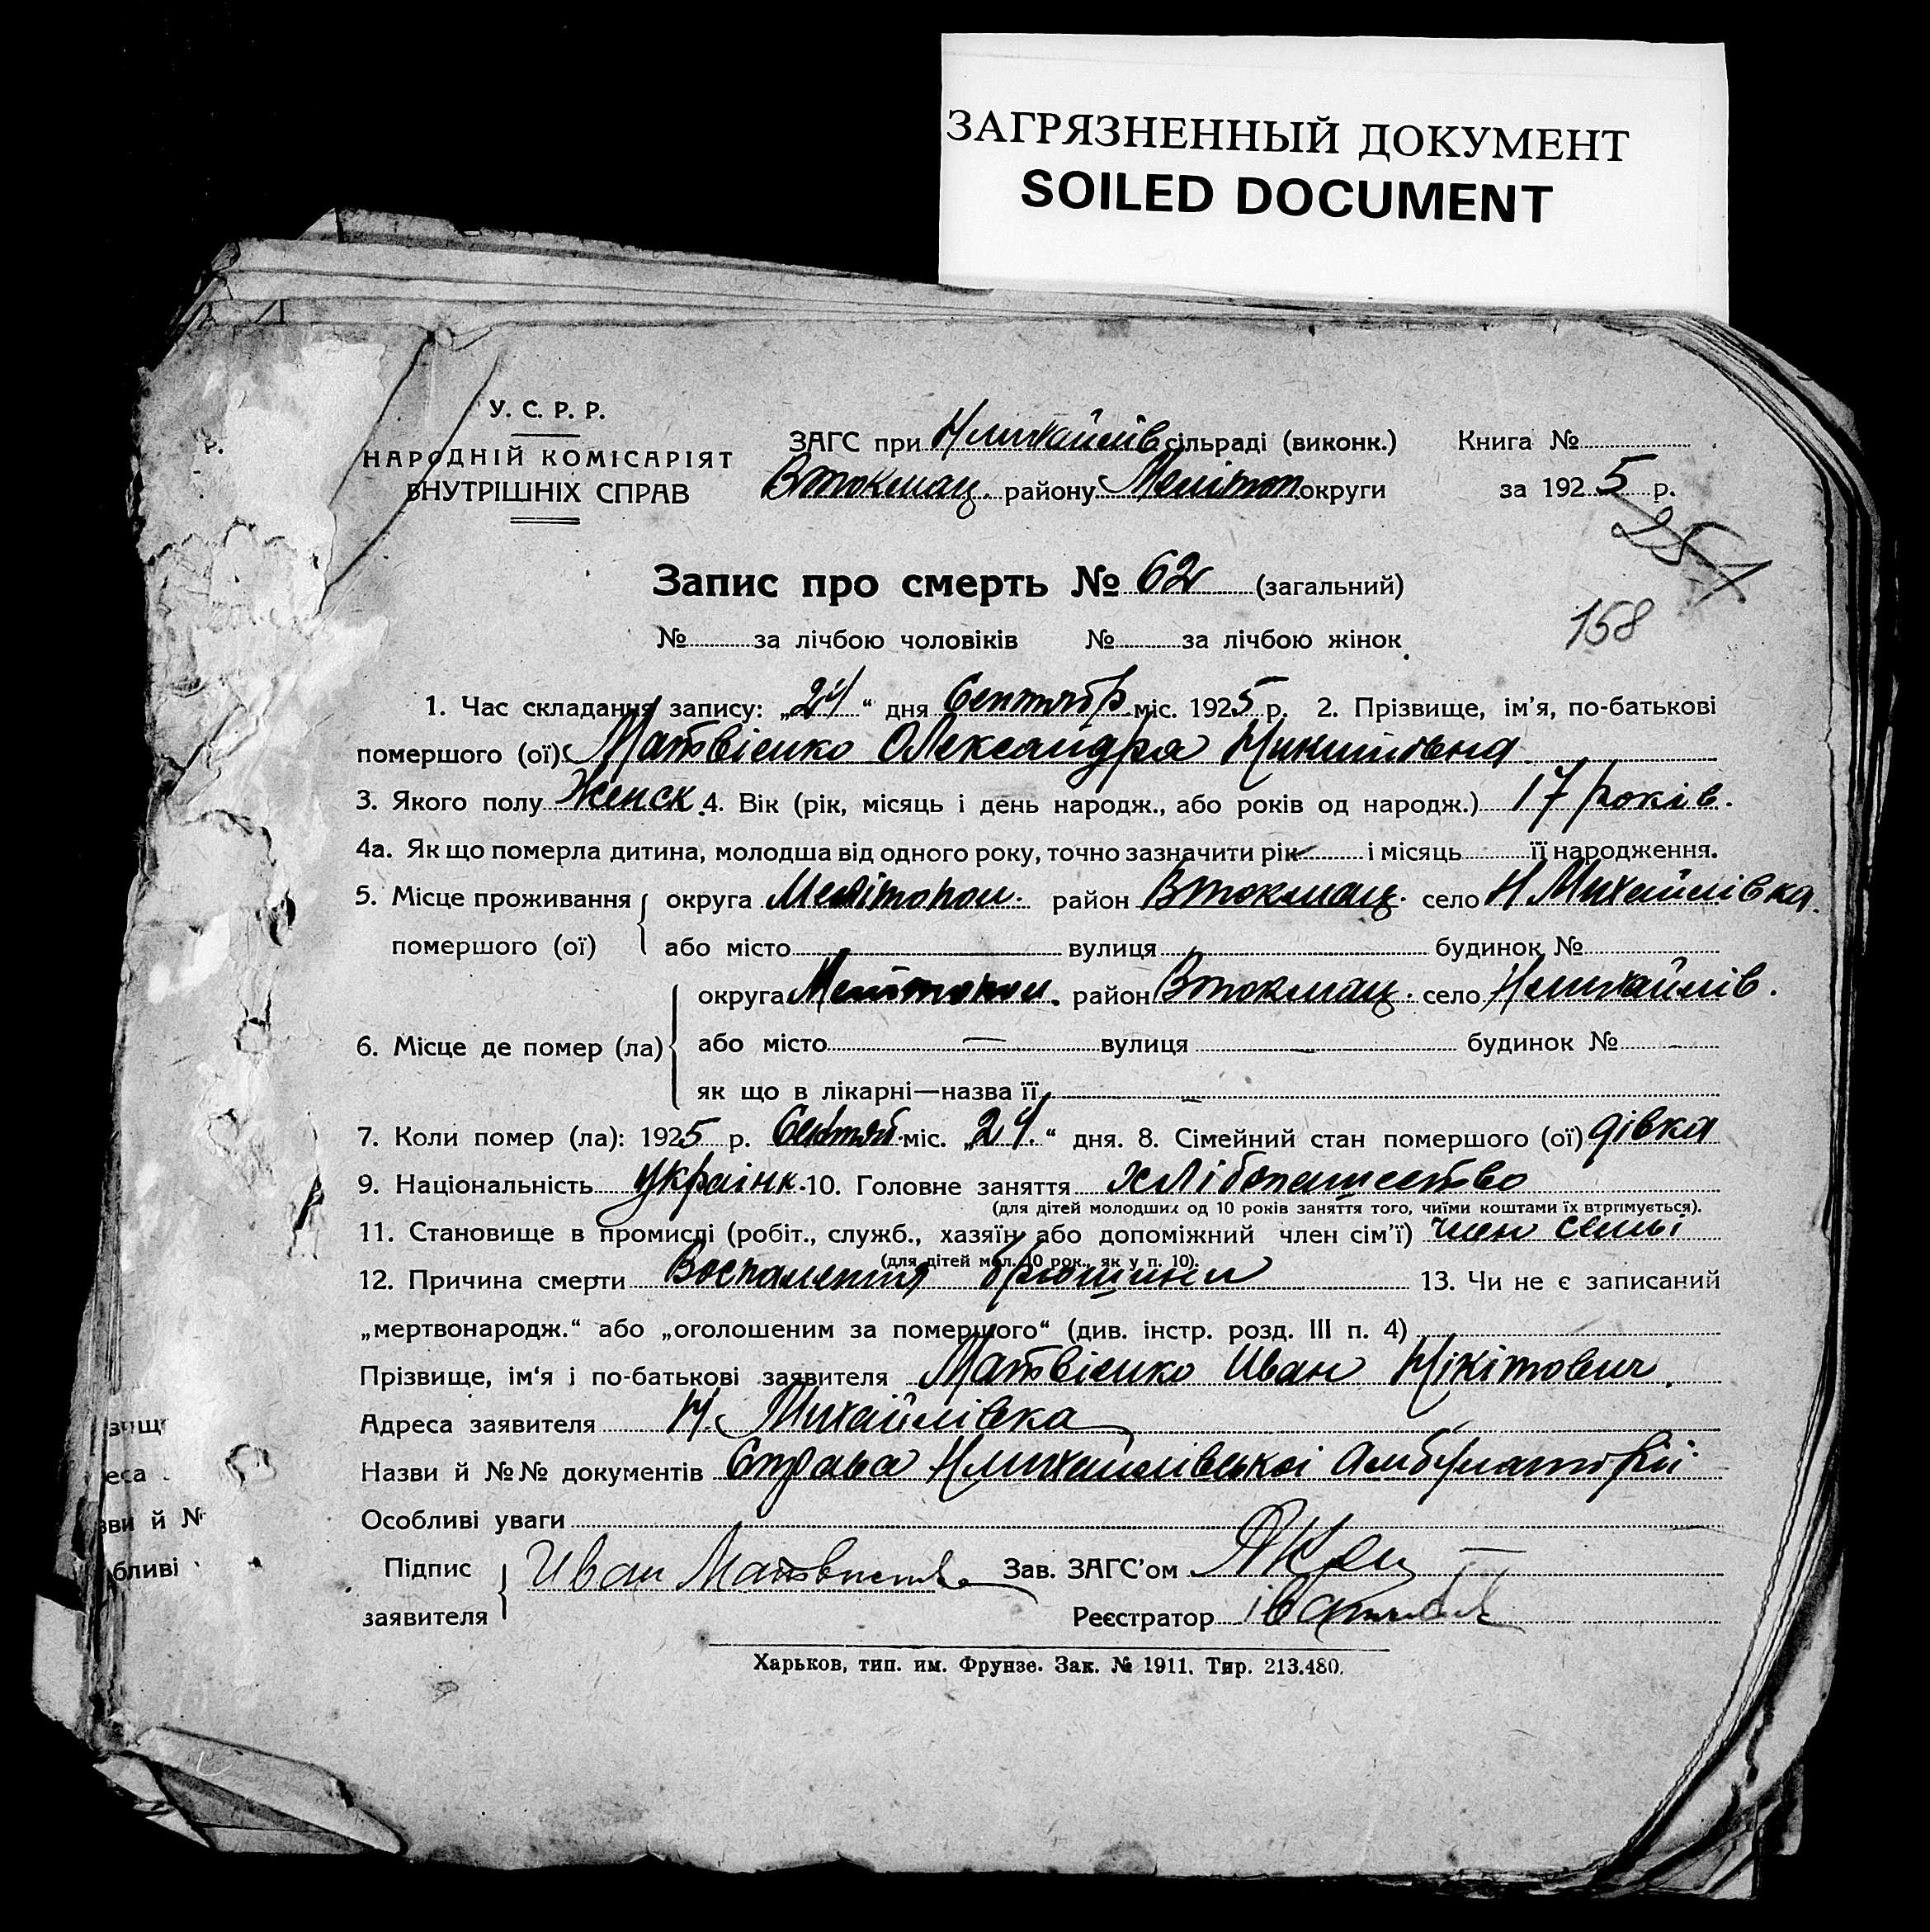 ЗАГРЯЗНЕННЫЙ ДОКУМЕНТ
SOILED DOCUMENT
У. С. Р. Р.
НАРОДНІЙ КОМІСАРІЯТ
ВНУТРІШНІХ СПРАВ
ЗАГС при Нмихайлів сільраді (виконк.) Книга №
Втокмац. району Мелітоп округи за 1925 р.
Запис про смерть № 62 (загальний)
158
№ за лічбою чоловіків № за лічбою жінок
1. Час складання запису: „24“ дня Сентябр міс. 1925 р. 2. Прізвище, ім'я, по-батькові
помершого (ої) Матвієнко Олександра Никитівна
3. Якого полу Женск. 4. Вік (рік, місяць і день народж., або років од народж.) 17 років.
4а. Як що померла дитина, молодша від одного року, точно зазначити рік і місяць її народження.
5. Місце проживання округа Мелітопол. район Втокмац. село Н Михайлівка.
помершого (ої) або місто вулиця будинок №
округа Мелітопол. район Втокмац. село Нмихайлів.
6. Місце де помер (ла) або місто — вулиця — будинок № —
як що в лікарні—назва її —
7. Коли помер (ла): 1925 р. Сентяб. міс. „24.“ дня. 8. Сімейний стан помершого (ої) дівка
9. Національність українк. 10. Головне заняття хлібопашество
(для дітей молодших од 10 років заняття того, чиїми коштами їх втримується).
11. Становище в промислі (робіт., служб., хазяїн або допоміжний член сім'ї) член семьі
(для дітей мол. 10 рок., як у п. 10).
12. Причина смерти Воспаления брюшини 13. Чи не є записаний
„мертвонародж.“ або „оголошеним за помершого“ (див. інстр. розд. III п. 4)
Прізвище, ім'я і по-батькові заявителя Матвієнко Иван Нікітович.
Адреса заявителя Н. Михайлівка
Назви й №№ документів Справа Нмихайлівської Амбулаторії
Особливі уваги
Підпис Иван Матвиенко Зав. ЗАГС'ом
заявителя Реєстратор
Харьков, тип. им. Фрунзе. Зак. № 1911. Тир. 213.480.